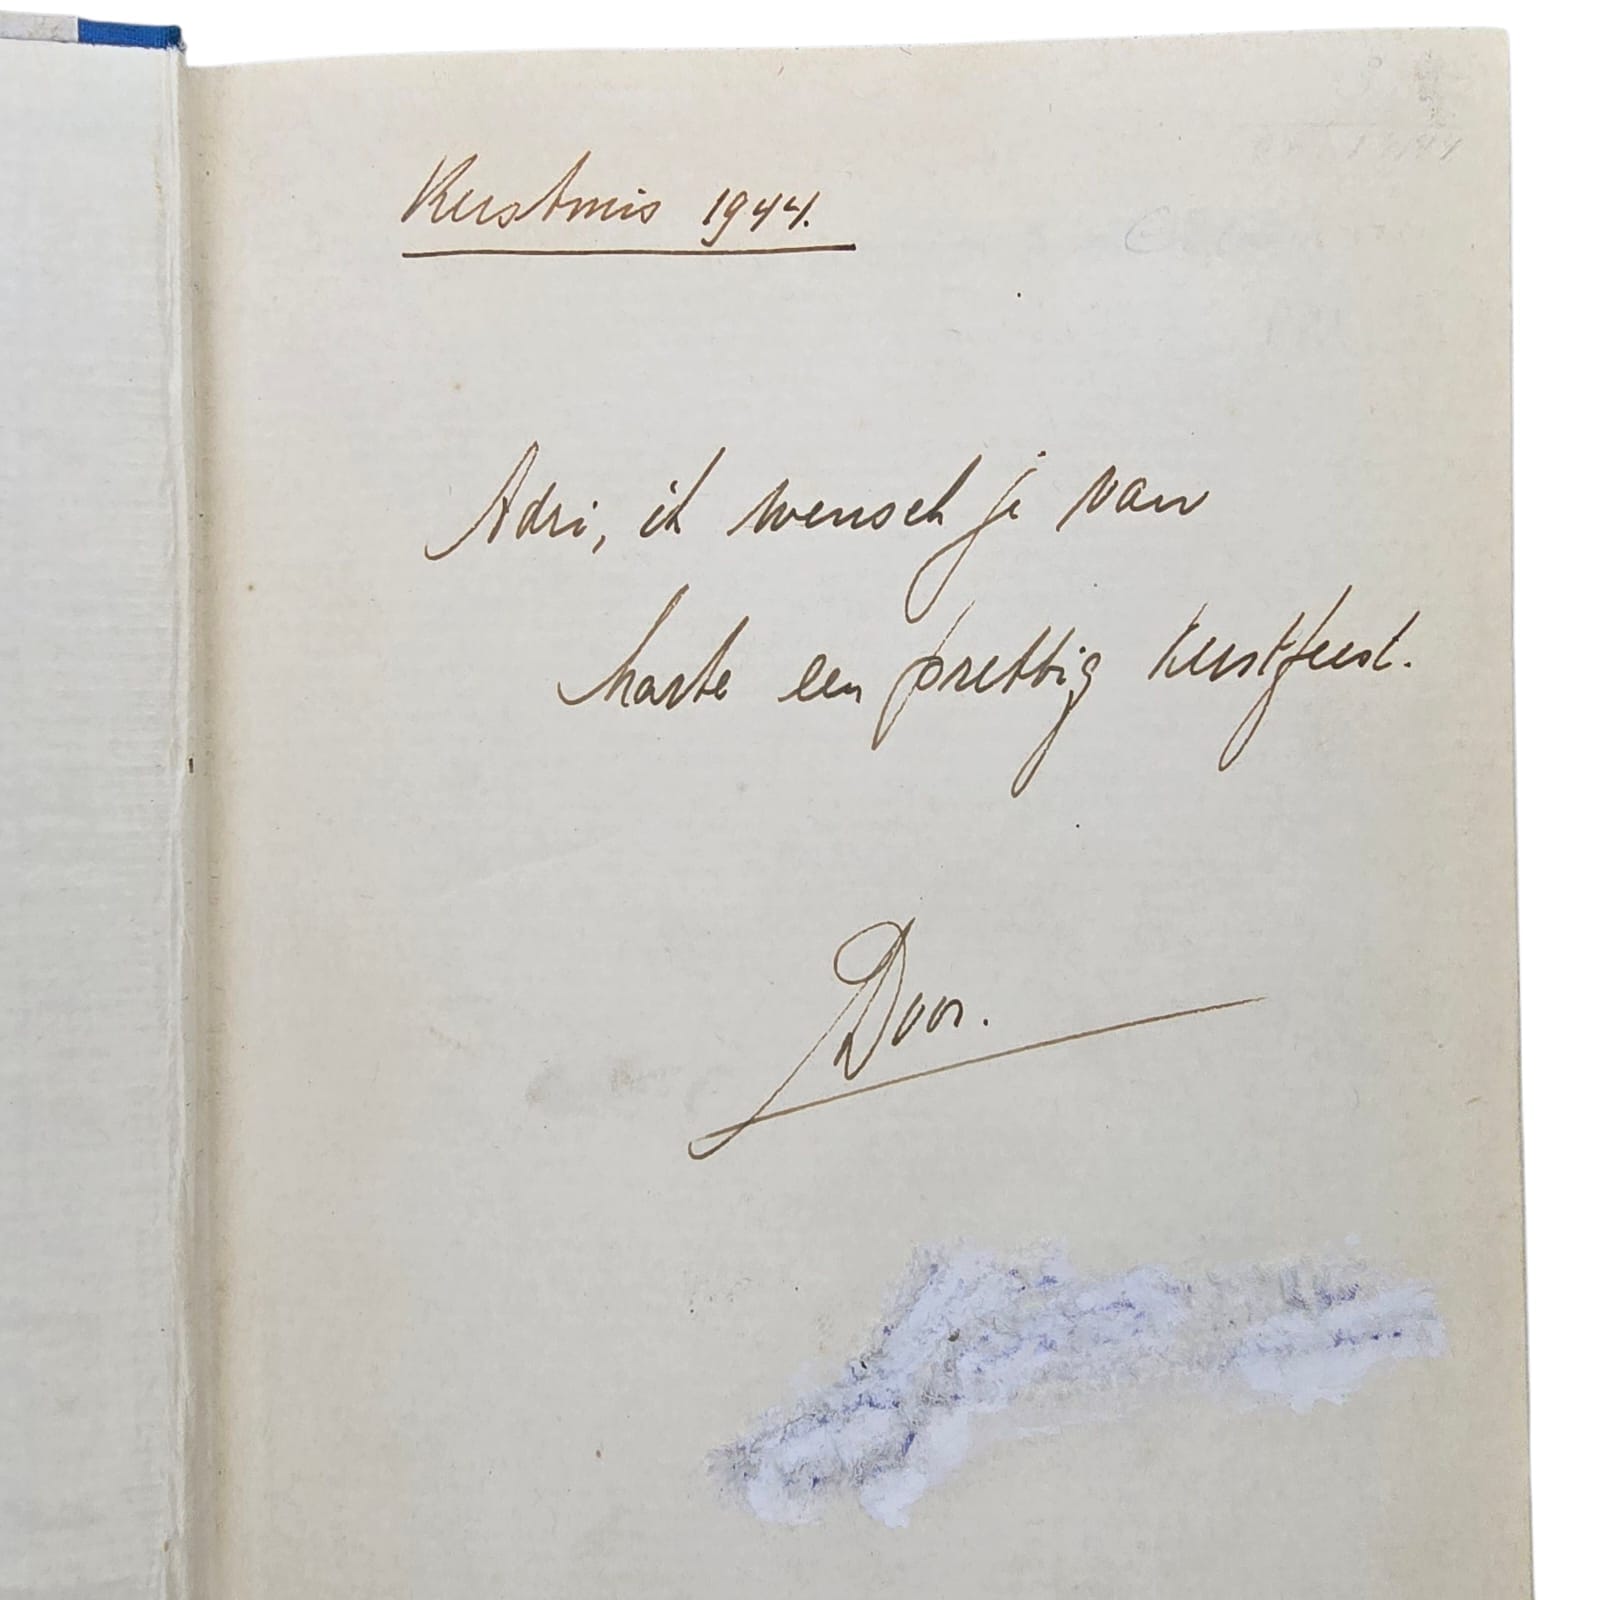 Kerstmis 1944.
Adri, ik wensch je van
harte een prettig kerstfeest.
Door.